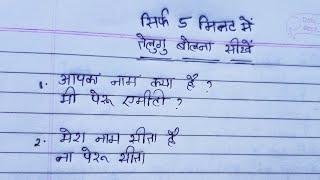 सिर्फ 5 मिनट में
तेलुगु बोलना सीखें
1. आपका नाम क्या है ?
मी पेरू एमीटी ?
2. मेरा नाम सीता है
ना पेरू सीता